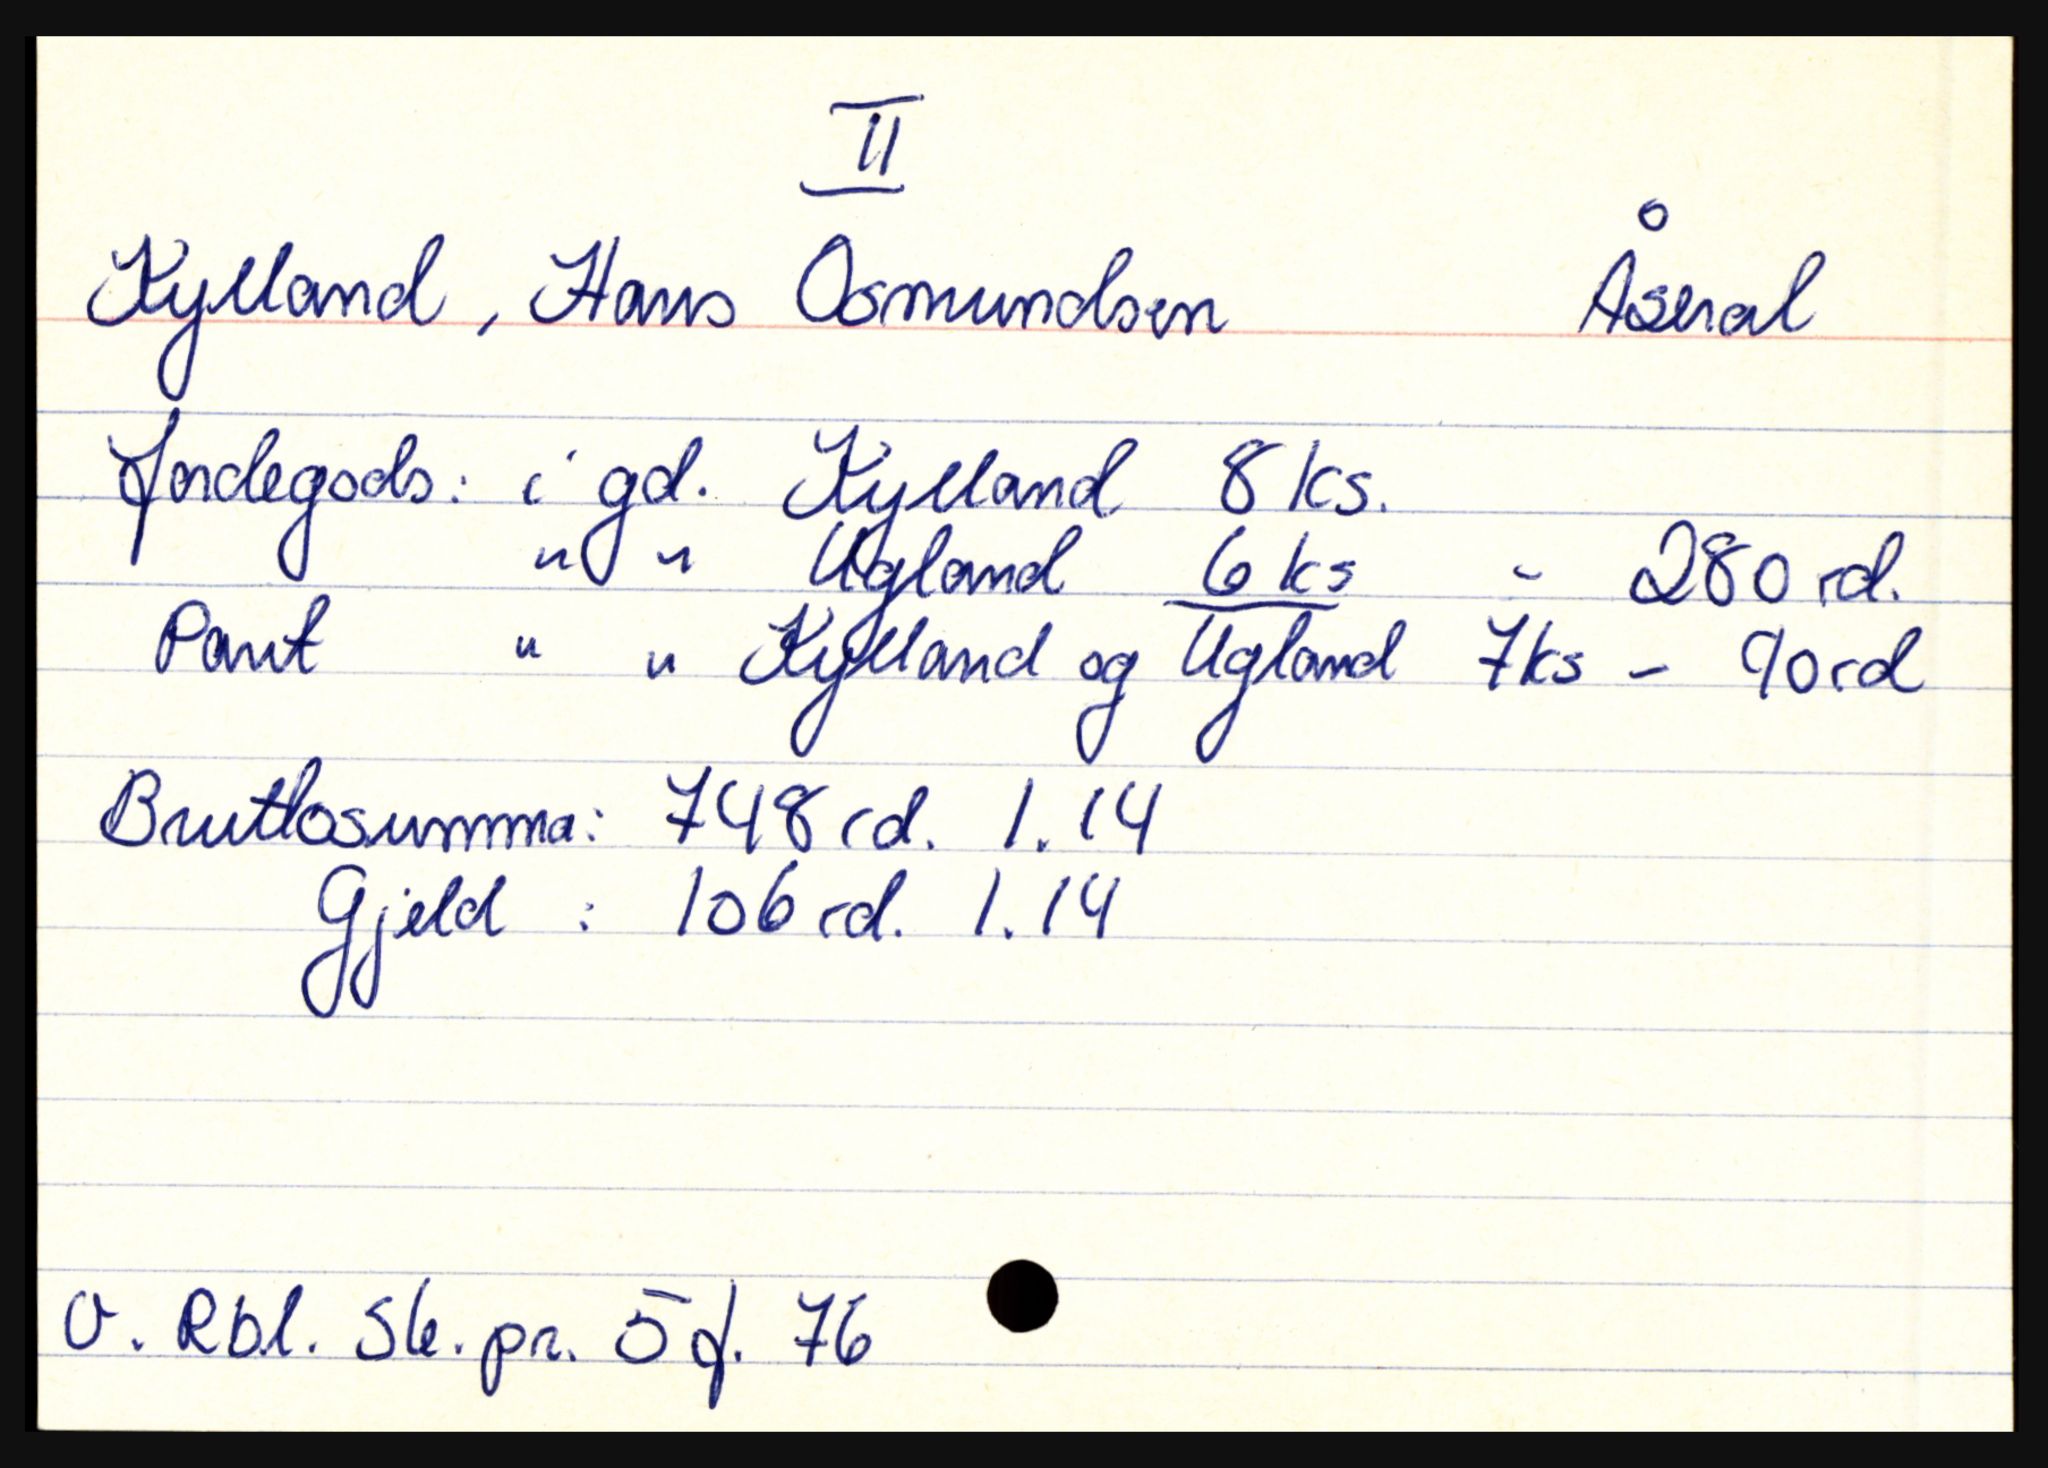 II
Kylland, Hans Osmundsen Åseral
Jordegods: i gd. Kylland 8 ks.
" " Ugland 6 ks - 280 rd.
Pant " " Kylland og Ugland 7ks - 90rd
Bruttosumma: 748 rd. 1.14
Gjeld : 106 rd. 1.14
V. Rbl. Sk. pr. 5 f. 76